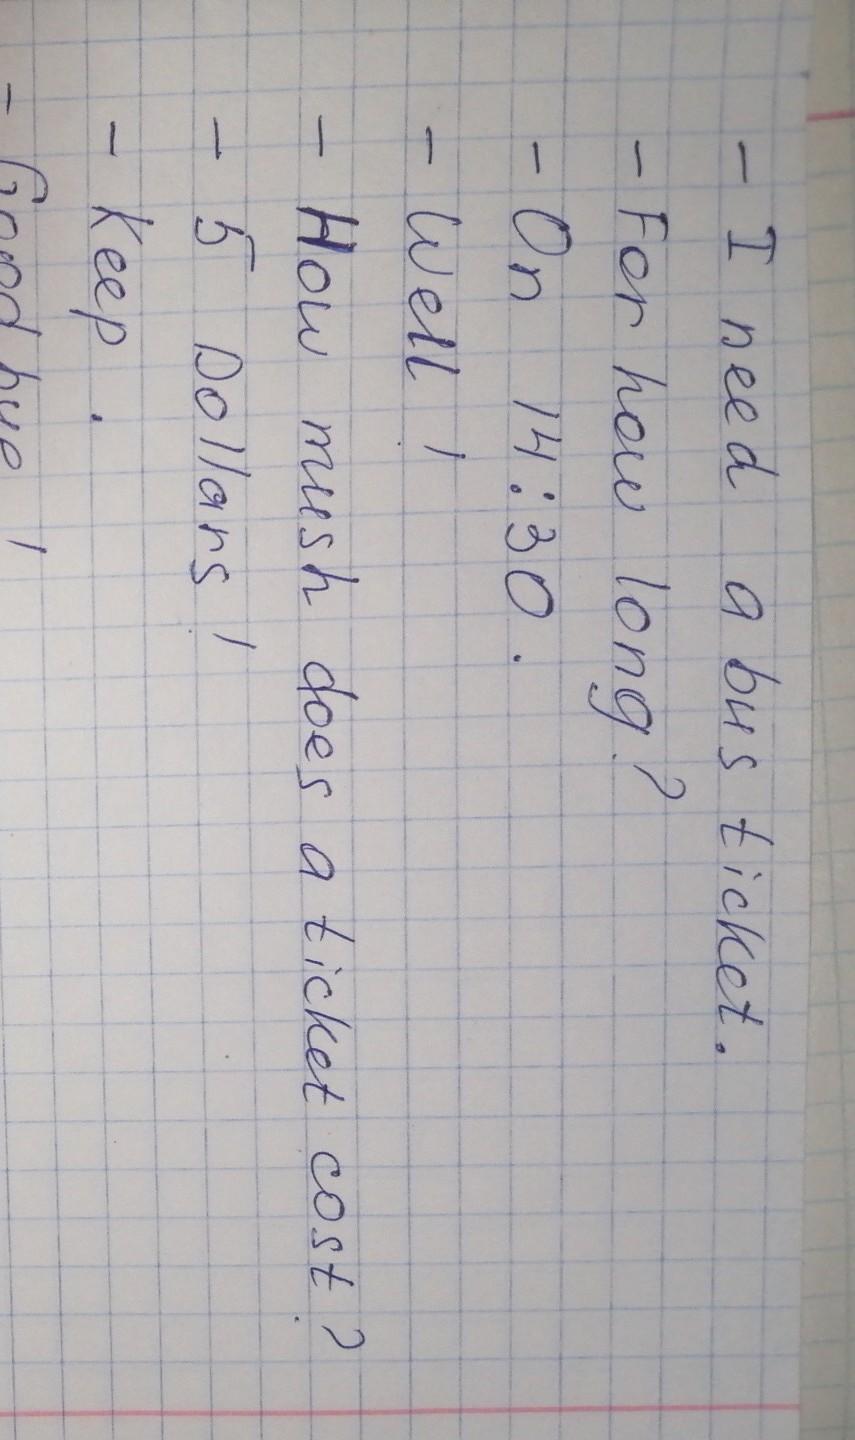 - I need a bus ticket.
- For how long?
- On 14:30.
- Well!
- How mush does a ticket cost?
- 5 Dollars!
- Keep.
- Good bye!